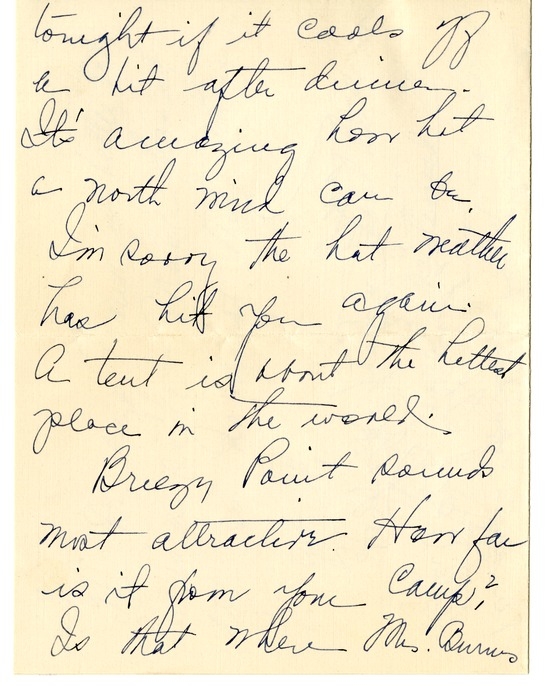 tonight if it cools off
a bit after dinner.
It's amazing how hot
a north wind can be.
I'm sorry the hot weather
has hit you again.
A tent is about the hottest
place in the world.
Breezy Point sounds
most attractive. How far
is it from your Camp?
Is that where Mrs. Burns